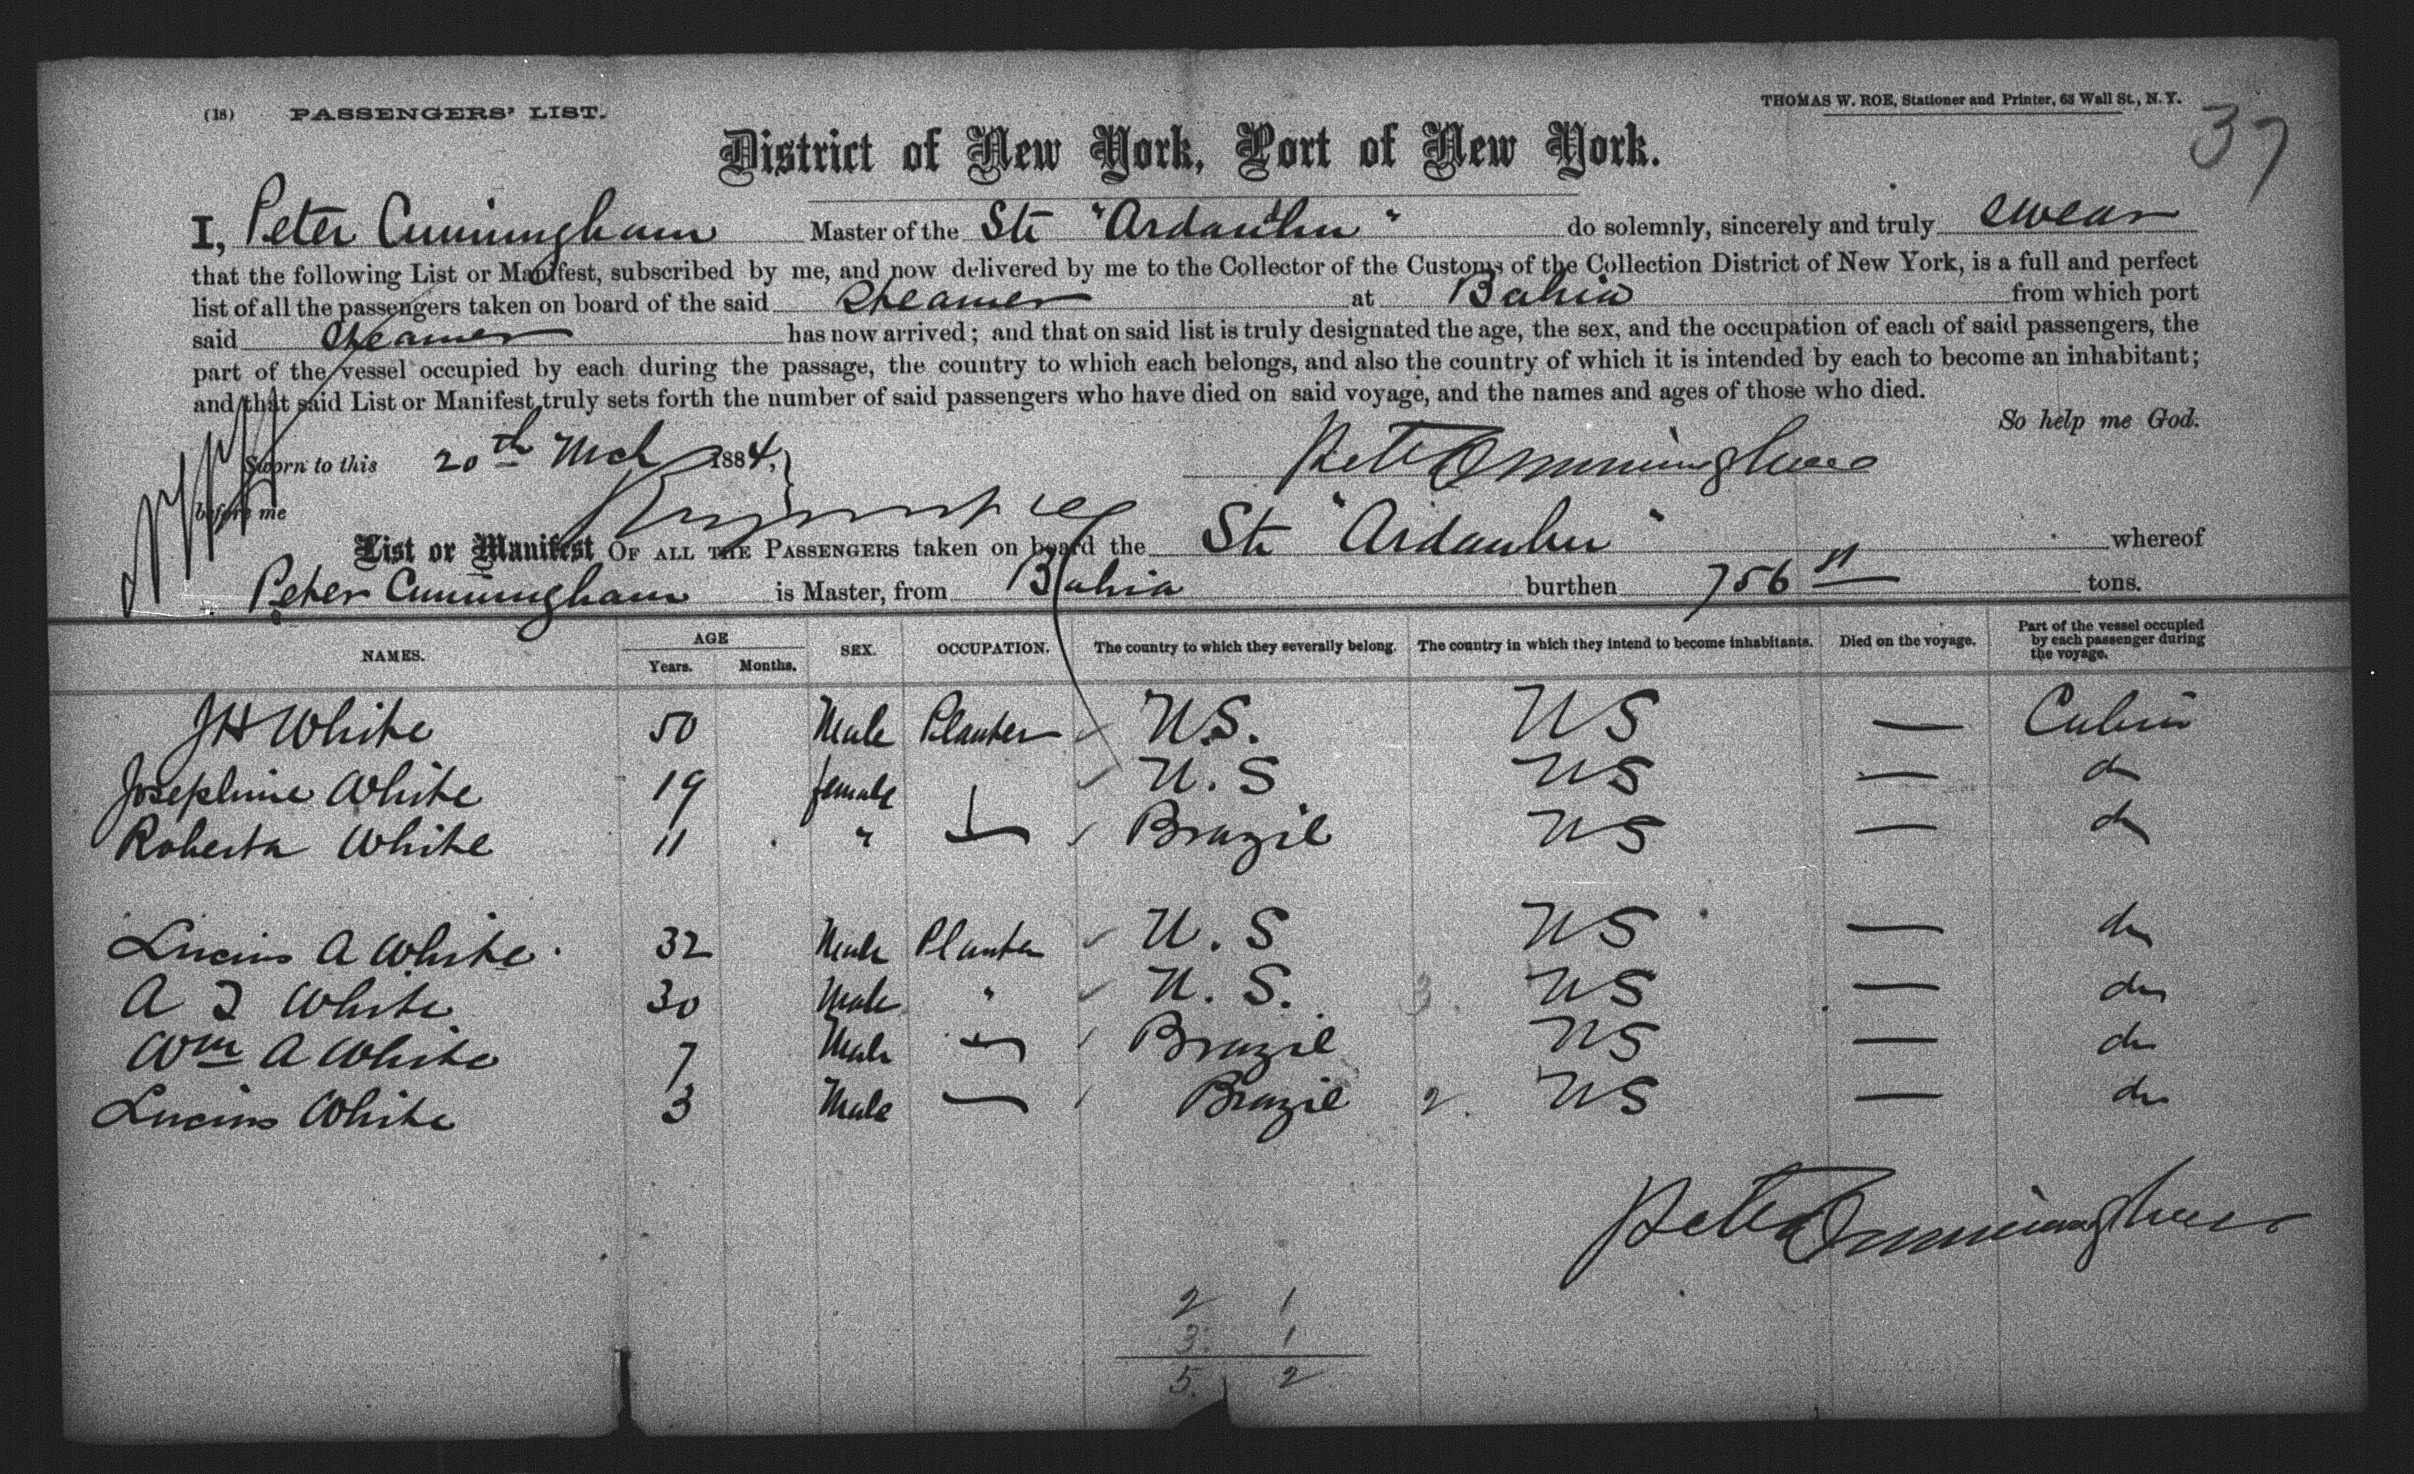 (18) PASSENGERS' LIST.
THOMAS W. ROE, Stationer and Printer, 63 Wall St., N.Y.
37
District of New York, Port of New York.
I, Peter Cunningham Master of the Str "Ardanhu" do solemnly, sincerely and truly swear
that the following List or Manifest, subscribed by me, and now delivered by me to the Collector of the Customs of the Collection District of New York, is a full and perfect
list of all the passengers taken on board of the said Steamer at Bahia from which port
said Steamer has now arrived; and that on said list is truly designated the age, the sex, and the occupation of each of said passengers, the
part of the vessel occupied by each during the passage, the country to which each belongs, and also the country of which it is intended by each to become an inhabitant;
and that said List or Manifest truly sets forth the number of said passengers who have died on said voyage, and the names and ages of those who died.
So help me God.
Sworn to this 20th Mch 1884, Peter Cunningham
before me
List or Manifest OF ALL THE PASSENGERS taken on board the Str "Ardanhu" whereof
Peter Cunningham is Master, from Bahia burthen 756 tons.
NAMES. AGE Years. Months. SEX. OCCUPATION. The country to which they severally belong. The country in which they intend to become inhabitants. Died on the voyage. Part of the vessel occupied by each passenger during the voyage.
J H White 50 Male Planter U.S. US — Cabin
Josephine White 19 female U.S US — do
Roberta White 11 " — Brazil US — do
Lucius A White 32 Male Planter U.S US — do
A J White 30 Male " U.S. 3 US — do
Wm A White 7 Male — Brazil US — do
Lucius White 3 Male — Brazil 2. US — do
Peter Cunningham
2 1
3. 1
5. 2